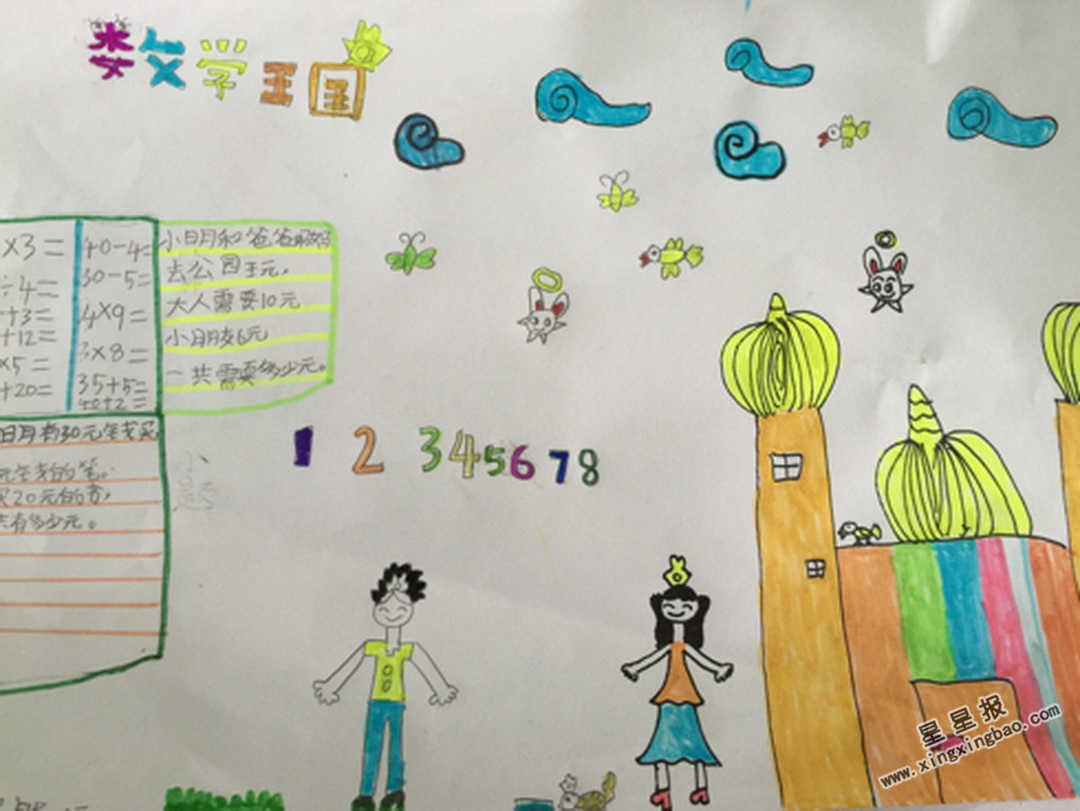 数学王国
×3=
÷4=
+3=
+12=
×5=
+20=
40-4=
30-5=
4×9=
3×8=
35+5=
40+2=
小明和爸爸妈妈
去公园玩,
大人需要10元
小朋友6元
一共需要多少元。
30元
元钱的笔。
买20元的书,
有多少元。
1 2 3 4 5 6 7 8
星星报
www.xingxingbao.com